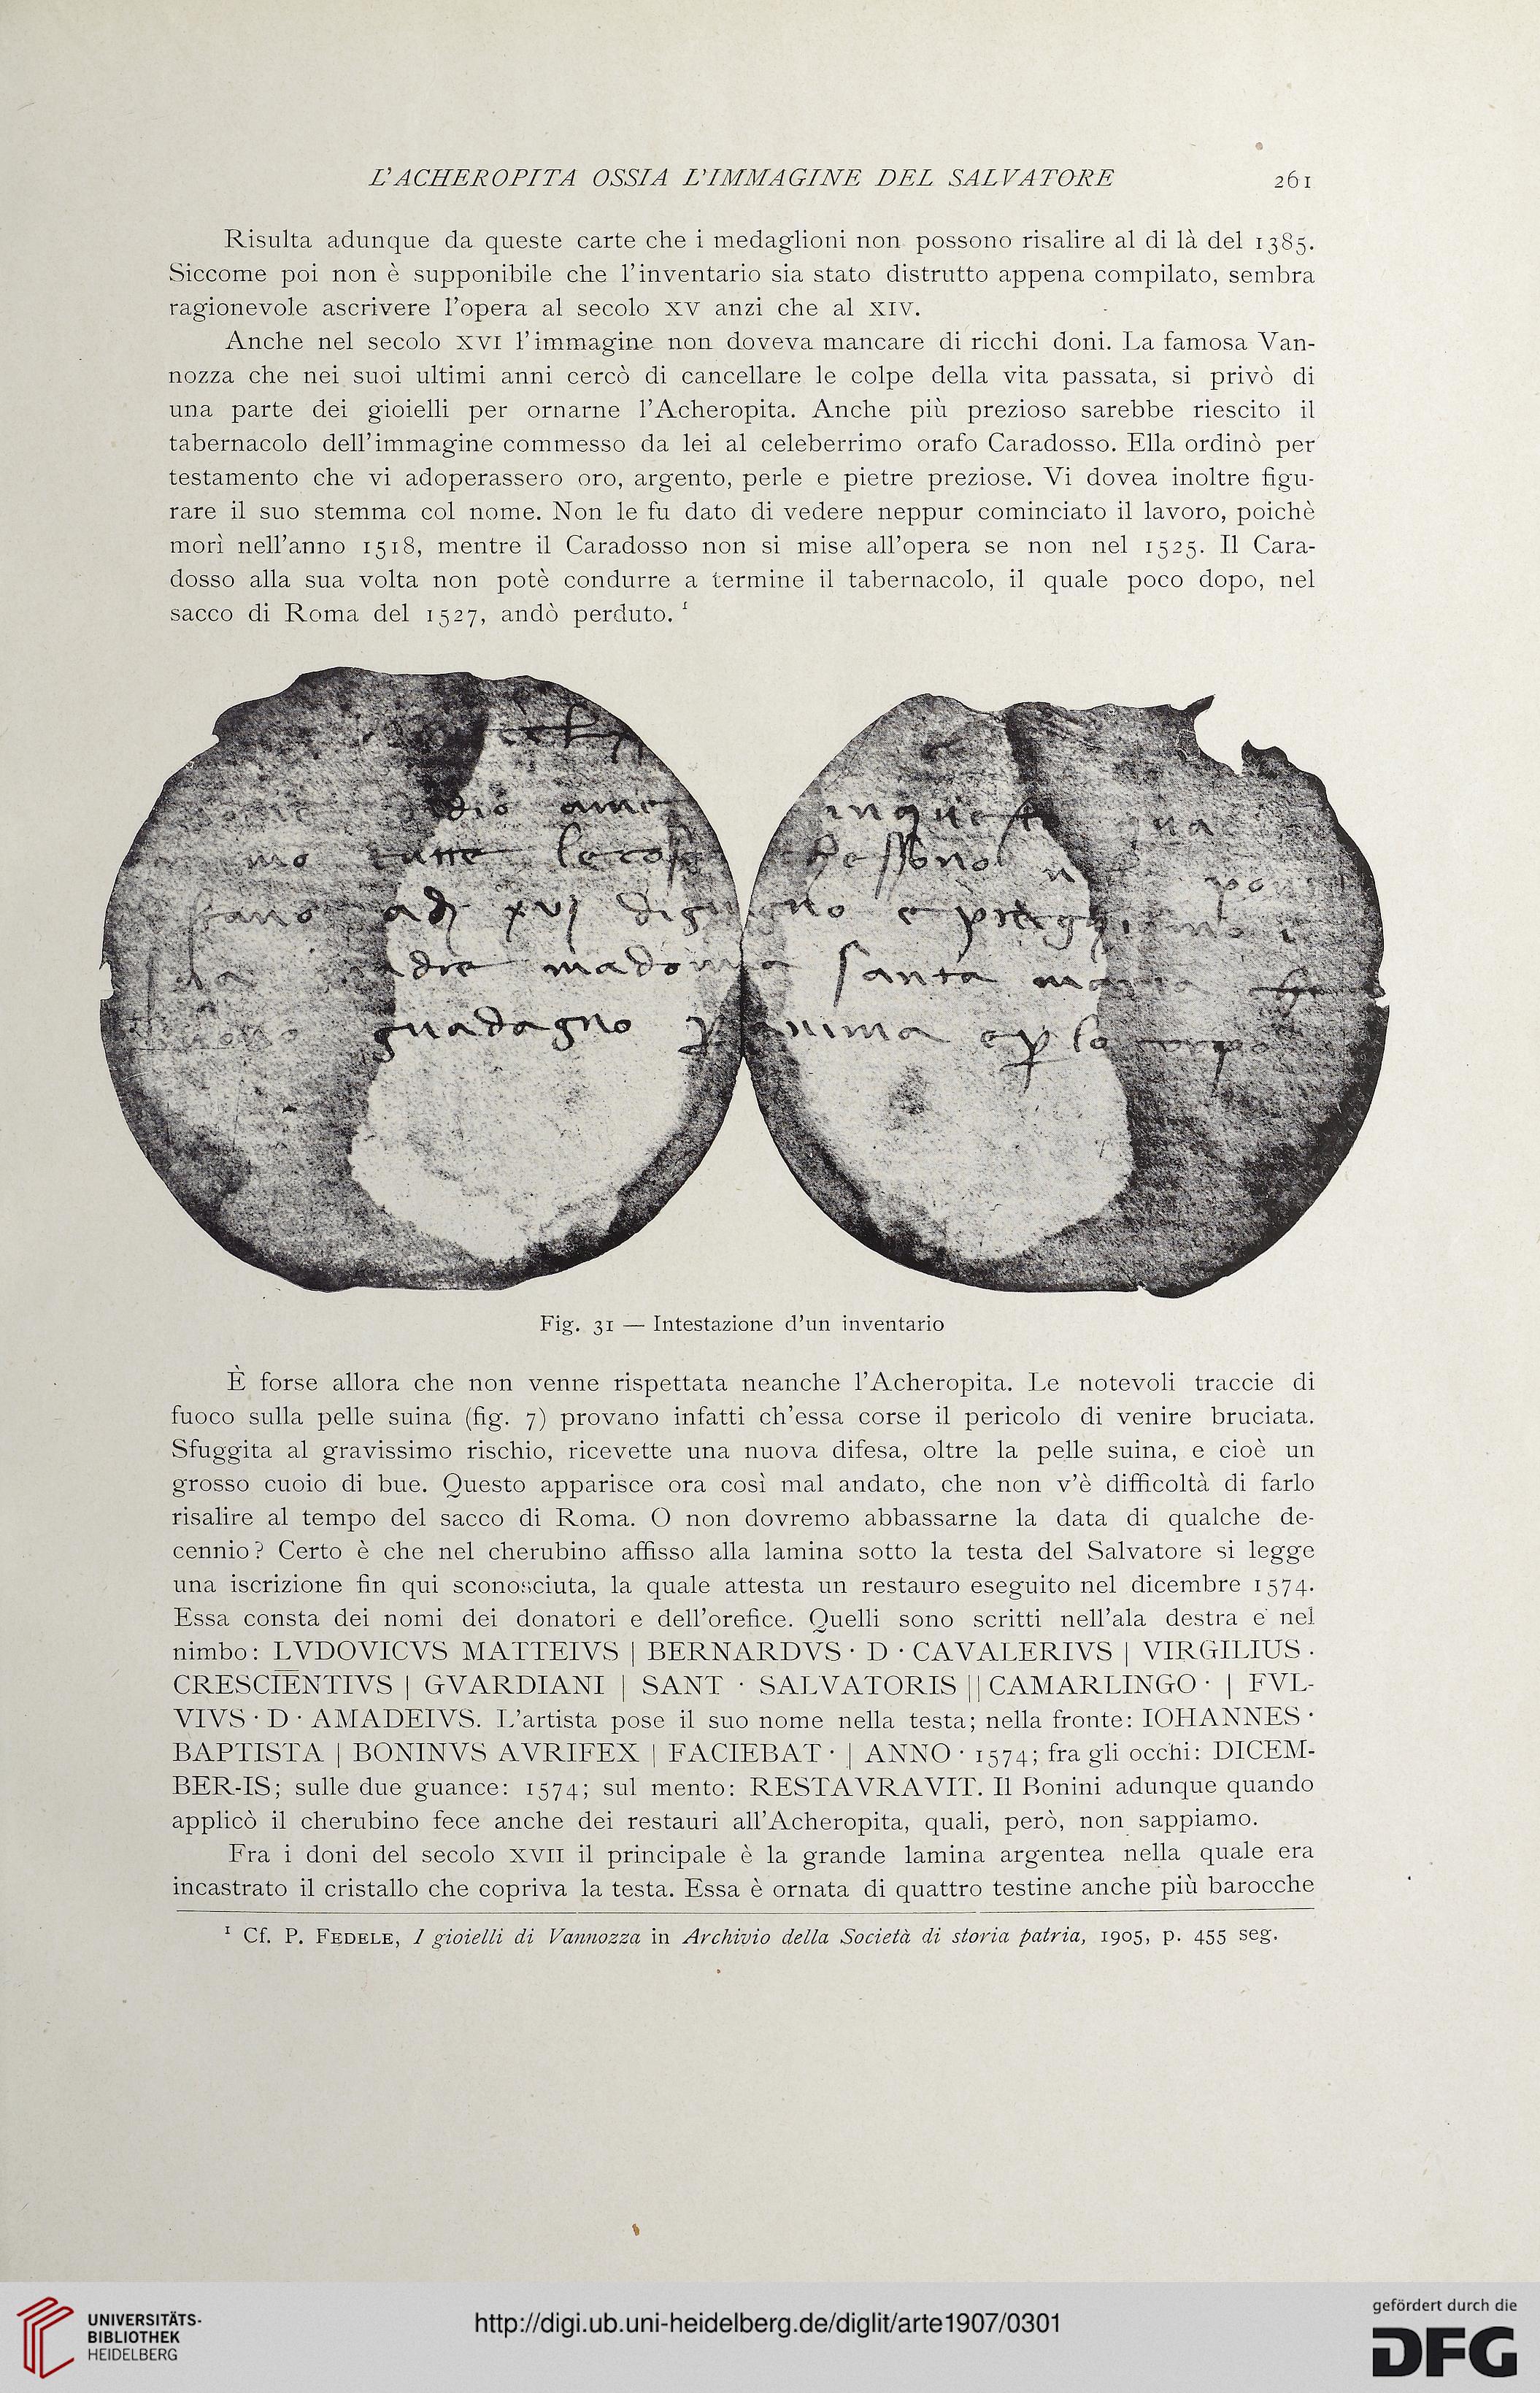 L'ACHEROPITA OSSIA L'IMMAGINE DEL SALVATORE 261
Risulta adunque da queste carte che i medaglioni non possono risalire al di là del 1385.
Siccome poi non è supponibile che l'inventario sia stato distrutto appena compilato, sembra
ragionevole ascrivere l'opera al secolo XV anzi che al XIV.
Anche nel secolo XVI l'immagine non doveva mancare di ricchi doni. La famosa Van-
nozza che nei suoi ultimi anni cercò di cancellare le colpe della vita passata, si privò di
una parte dei gioielli per ornarne l'Acheropita. Anche più prezioso sarebbe riescito il
tabernacolo dell'immagine commesso da lei al celeberrimo orafo Caradosso. Ella ordinò per
testamento che vi adoperassero oro, argento, perle e pietre preziose. Vi dovea inoltre figu-
rare il suo stemma col nome. Non le fu dato di vedere neppur cominciato il lavoro, poichè
morì nell'anno 1518, mentre il Caradosso non si mise all'opera se non nel 1525. Il Cara-
dosso alla sua volta non potè condurre a termine il tabernacolo, il quale poco dopo, nel
sacco di Roma del 1527, andò perduto. ¹
dio ame inqueste qua
mo tutte le cose che ssono
ad xvj di giugno e preghiamo
madre madonna santa maria che
guadagno p anima e p lo corpo
Fig. 31 — Intestazione d'un inventario
È forse allora che non venne rispettata neanche l'Acheropita. Le notevoli traccie di
fuoco sulla pelle suina (fig. 7) provano infatti ch'essa corse il pericolo di venire bruciata.
Sfuggita al gravissimo rischio, ricevette una nuova difesa, oltre la pelle suina, e cioè un
grosso cuoio di bue. Questo apparisce ora così mal andato, che non v'è difficoltà di farlo
risalire al tempo del sacco di Roma. O non dovremo abbassarne la data di qualche de-
cennio? Certo è che nel cherubino affisso alla lamina sotto la testa del Salvatore si legge
una iscrizione fin qui sconosciuta, la quale attesta un restauro eseguito nel dicembre 1574.
Essa consta dei nomi dei donatori e dell'orefice. Quelli sono scritti nell'ala destra e nel
nimbo: LVDOVICVS MATTEIVS | BERNARDVS · D · CAVALERIVS | VIRGILIUS ·
CRESCIENTIVS | GVARDIANI | SANT · SALVATORIS || CAMARLINGO · | FVL-
VIVS · D · AMADEIVS. L'artista pose il suo nome nella testa; nella fronte: IOHANNES ·
BAPTISTA | BONINVS AVRIFEX | FACIEBAT · | ANNO · 1574; fra gli occhi: DICEM-
BER-IS; sulle due guance: 1574; sul mento: RESTAVRAVIT. Il Bonini adunque quando
applicò il cherubino fece anche dei restauri all'Acheropita, quali, però, non sappiamo.
Fra i doni del secolo XVII il principale è la grande lamina argentea nella quale era
incastrato il cristallo che copriva la testa. Essa è ornata di quattro testine anche più barocche
¹ Cf. P. FEDELE, I gioielli di Vannozza in Archivio della Società di storia patria, 1905, p. 455 seg.
UNIVERSITÄTS-
BIBLIOTHEK
HEIDELBERG
http://digi.ub.uni-heidelberg.de/diglit/arte1907/0301
gefördert durch die
DFG